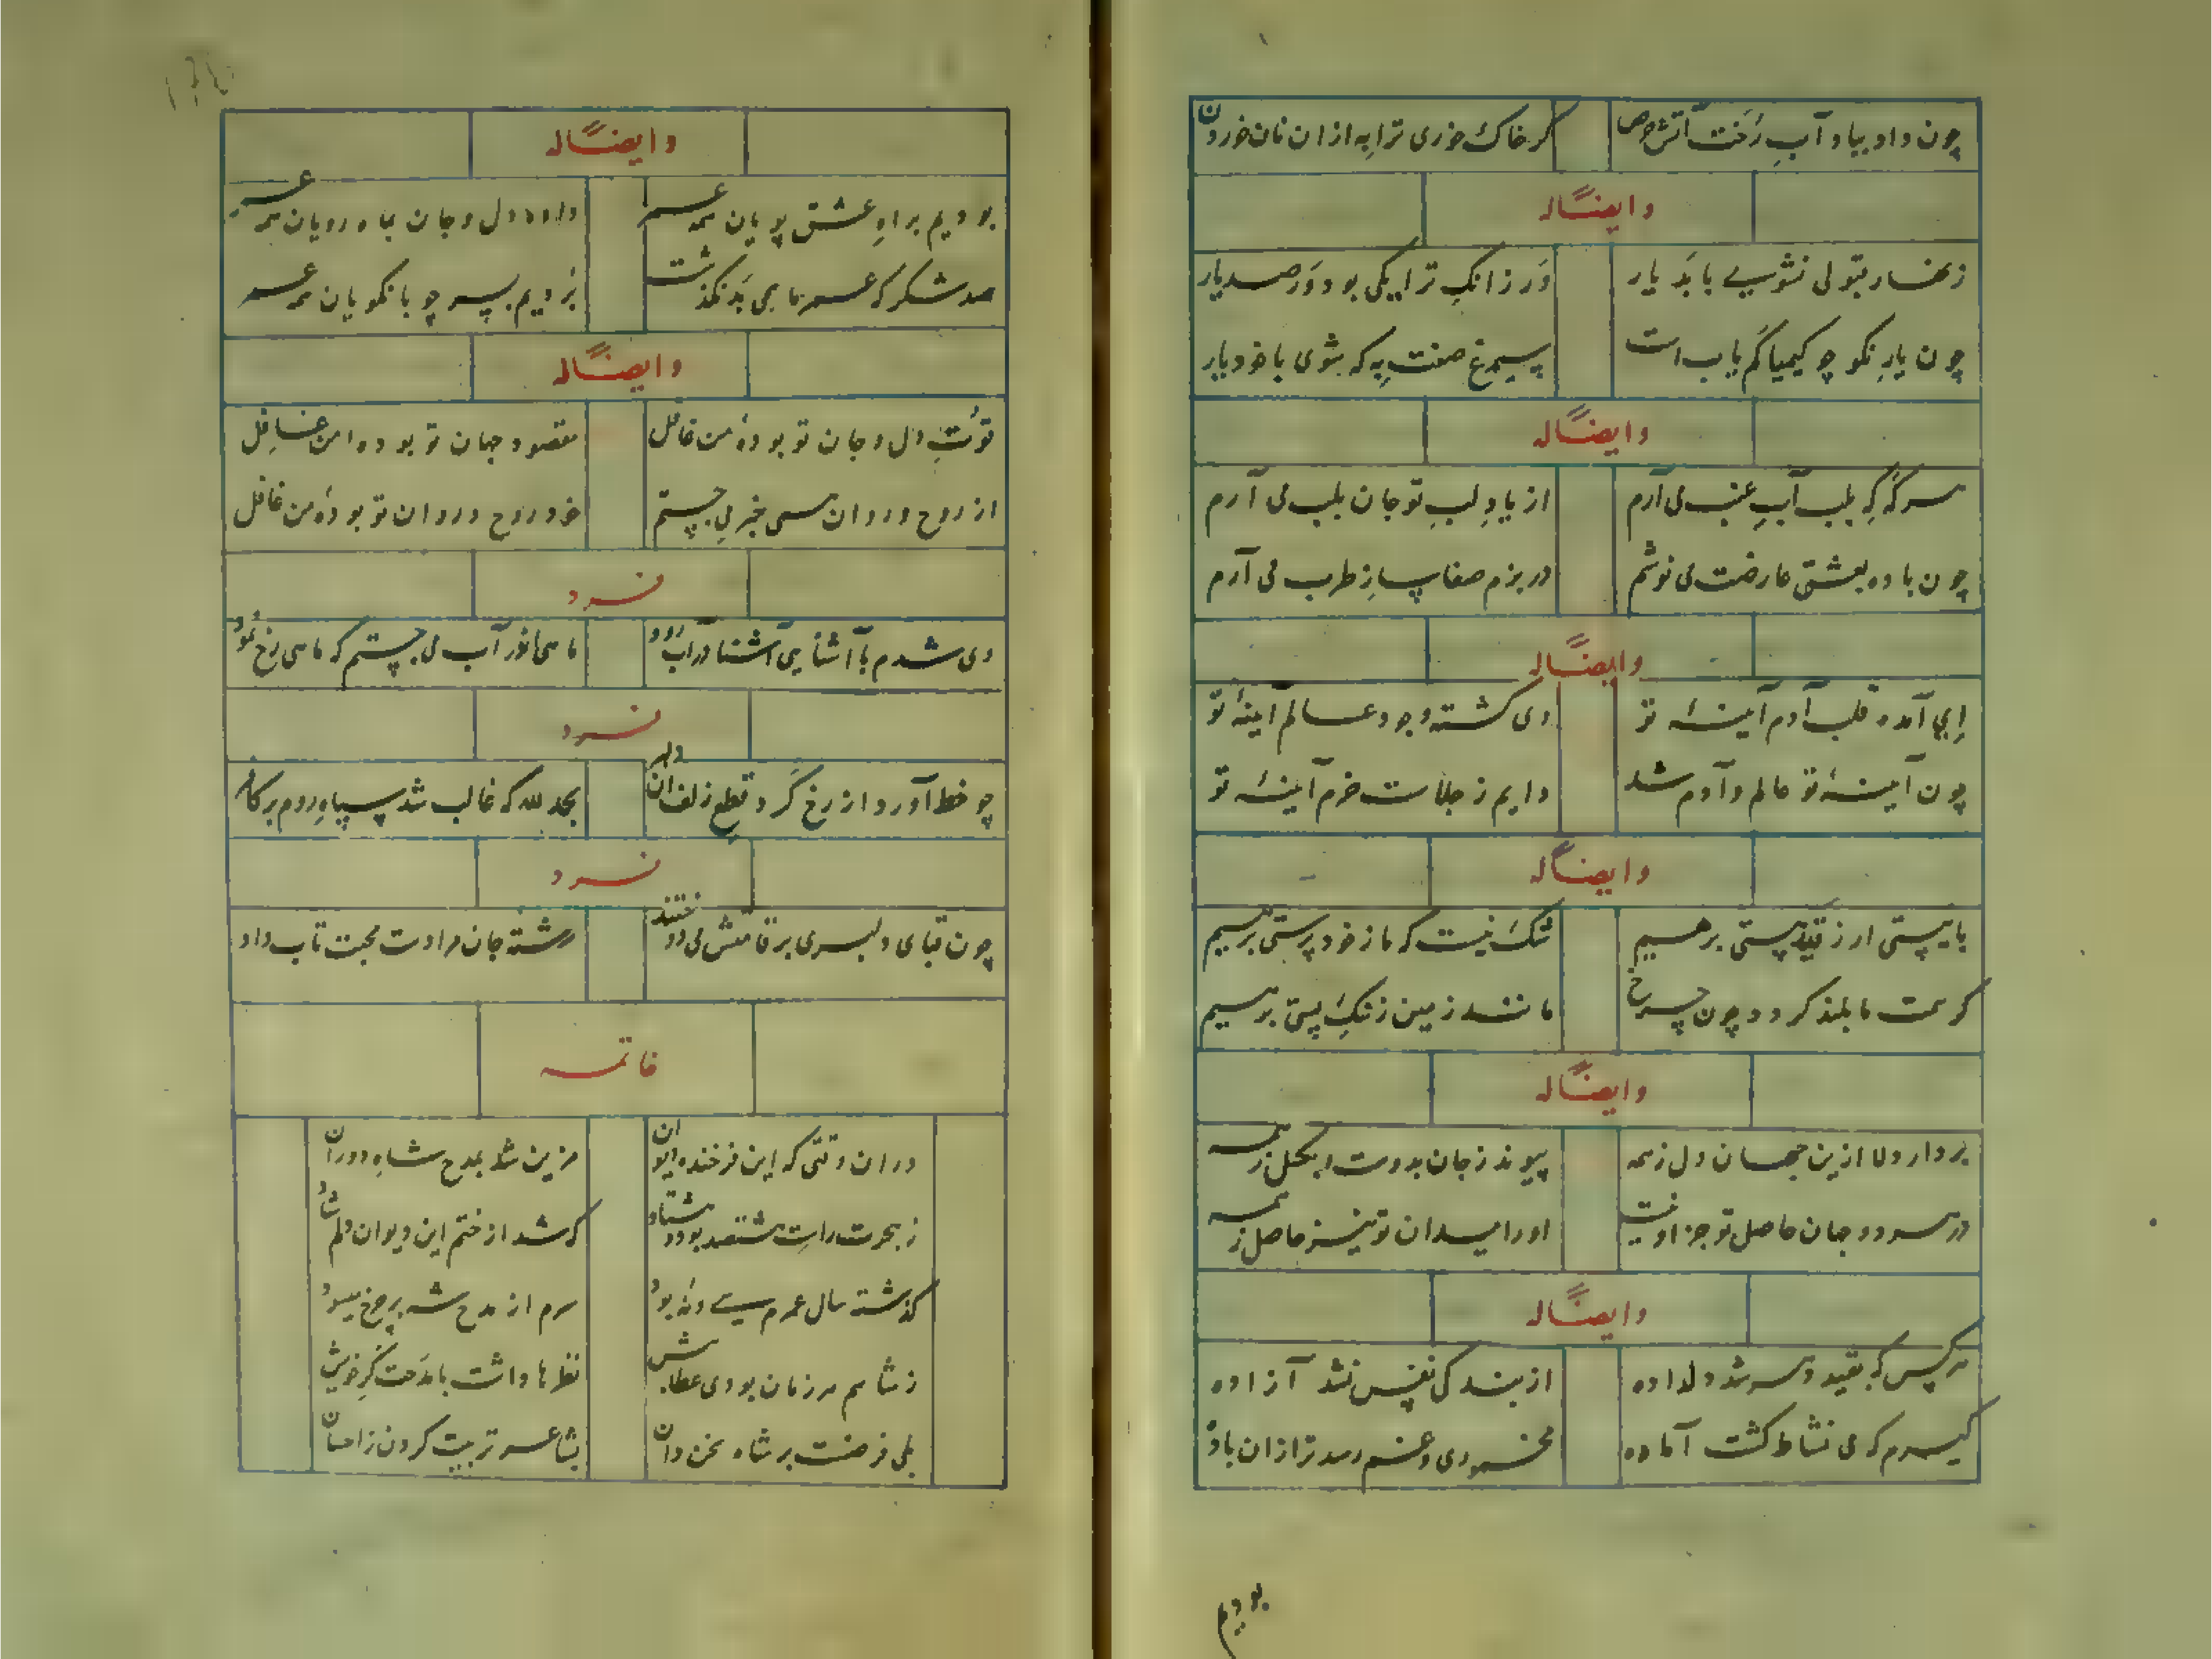 چون داد بباد آبِ رُخت آتش حرص
گر خاک خوری ترا به از ان نان خوردن
وایضاً له
زنهار بتولی نشوی با بَد یار
وَر زانکِ ترا یکی بود وَر صد یار
چون یارِ نکو چو کیمیا کم یاب است
سیمرغ صفت به که شوی با خود یار
وایضاً له
هر گَه که بلب آبِ عنب می آرم
از یادِ لبِ تو جان بلب می آرم
چون باده بعشق عارضت می نوشم
در بزم صفا سازِ طرب می آرم
وایضاً له
ای آمده قلب آدم آینهٔ تو
وی گشته وجود عالم آینهٔ تو
چون آینهٔ تو عالم و آدم شد
دایم ز جلالت خرم آینهٔ تو
وایضاً له
بایستی ار ز قید هستی برهیم
شک نیست که ما ز خود پرستی برهیم
گر همت ما بلند گردد چون چرخ
مانند زمین ز ننگِ پستی برهیم
وایضاً له
بردار دلا ازین جهان دل ز همه
پیوند ز جان بدوست بگسل ز همه
در هر دو جهان حاصل تو جز او نیست
او را میدان تو نیز حاصل ز همه
وایضاً له
هر کس که بقید دهر شد دلداده
از بندگی نفس نشد آزاده
گیرم که می نشاط گشت آماده
مخموری و غم رسد ترا زان باده
بودیم
وایضاً له
بودیم براهِ عشق پویان همه عمر
داده دل و جان بماه رویان همه عمر
صد شکر که عمر ما همی بَد نگذشت
بُردیم بسر چو با نکویان همه عمر
وایضاً له
قوّتِ دل و جان تو بودهٔ من غافل
مقصود جهان تو بودهٔ من غافِل
از روح و روان همی خبر می جستم
خود روح و روان تو بودهٔ من غافل
فرد
دی شدم با آشنایی آشنا در آب رود
ماهی اندر آب می جستم که ماهی رخ نمود
فرد
چو خط آورد از رخ کرد قطع زلف آن دلبر
بحمد لله که غالب شد سپاهِ روم بر کافر
فرد
چون قبای دلبری بر قامتش می دوختند
رشتهٔ جان مرادت محبت تاب داد
خاتمه
دران وقتی که این فرخنده ایوان
مزین شد بمدح شاهِ دوران
ز هجرت راست هشتصد بود و هشتاد
که شد از ختم این دیوان دلم شاد
گذشته سال عمرم سی و نُه بود
سرم از مدح شه بر چرخ میسود
ز شاهم هر زمان بودی عطابش
نظرها داشت با مدحت گرِ خویش
بلی فرضست بر شاه سخن دان
بشاعر تربیت کردن ز احسان